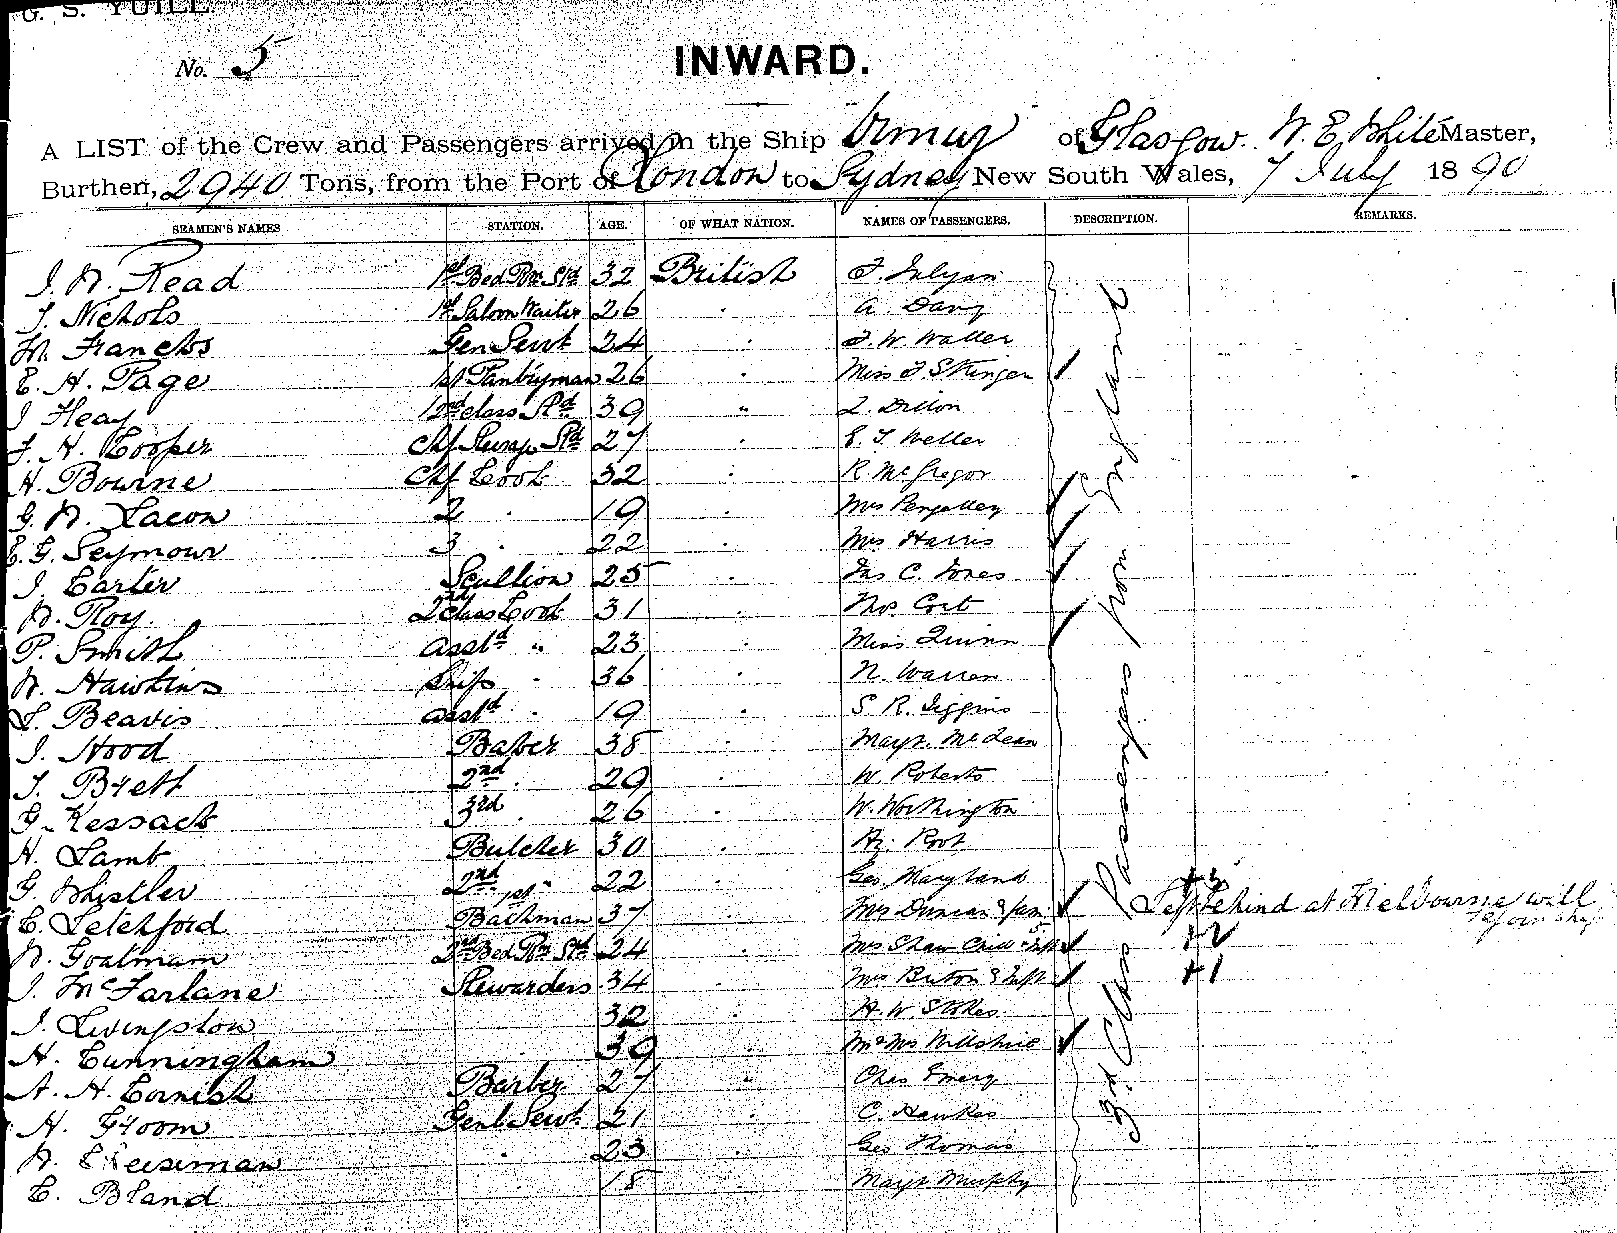 G. S. YUILL
No. 5
INWARD.
A LIST of the Crew and Passengers arrived in the Ship Ormuz of Glasgow. W. E. White Master,
Burthen, 2940 Tons, from the Port of London to Sydney New South Wales, 7 July 1890
SEAMEN'S NAMES STATION. AGE. OF WHAT NATION. NAMES OF PASSENGERS. DESCRIPTION. REMARKS.
J. W. Read 1st Bed Rm Std 32 British
T. Nichols 1st Saloon Waiter 26 " A. Davy
W. Francks Gen Servt 24 " F. W. Waller
E. H. Page 1st Pantryman 26 " Miss F Stringer
J Heay 2nd class Std 39 " Dillon
F. H. Cooper Chf Std 27 " E. T. Weller
H. Bourne Chf Cook 32 " R. McGregor
G. W. Lacon 2 " 19 " Mrs
E. G. Seymour 3 " 22 " Mrs Harris
J. Carter Scullion 25 " Jas C. Jones
W. Roy 2nd class Cook 31 " Cort
P. Smith Asstd " 23 " Miss Quinn
W. Hawkins Ships " 36 " N. Warren
L. Beavis Asstd " 19 " S. R. Jiggins
J. Hood Baker 38 " McLean
T. Brett 2nd " 29 " W. Roberts
G. Kessack 3rd " 26 " W. Worthington
H. Lamb Butcher 30 " Hy. Root
G. Whistler 2nd " 22 " Geo Maryland +3
C. Letchford Bathman 37 " Mrs Duncan & fam Left behind at Melbourne will rejoin ship
W. Goatmam 2nd Bed Rm Std 24 " Mrs Shaw Child & Inft +2
J. McFarlane Stewardess 34 " Mrs & Inft +1
J. Livingston 32 " H. W. Stokes
H. Cunningham 39 " Mr & Mrs Willshire
A. H. Cornish Barber 27 " Chas Emery
H. Groom Genl Servt 21 " C. Hawkes
W. 23 " Geo Thomas
C. Bland 18 Murphy
3rd Class Passengers from England